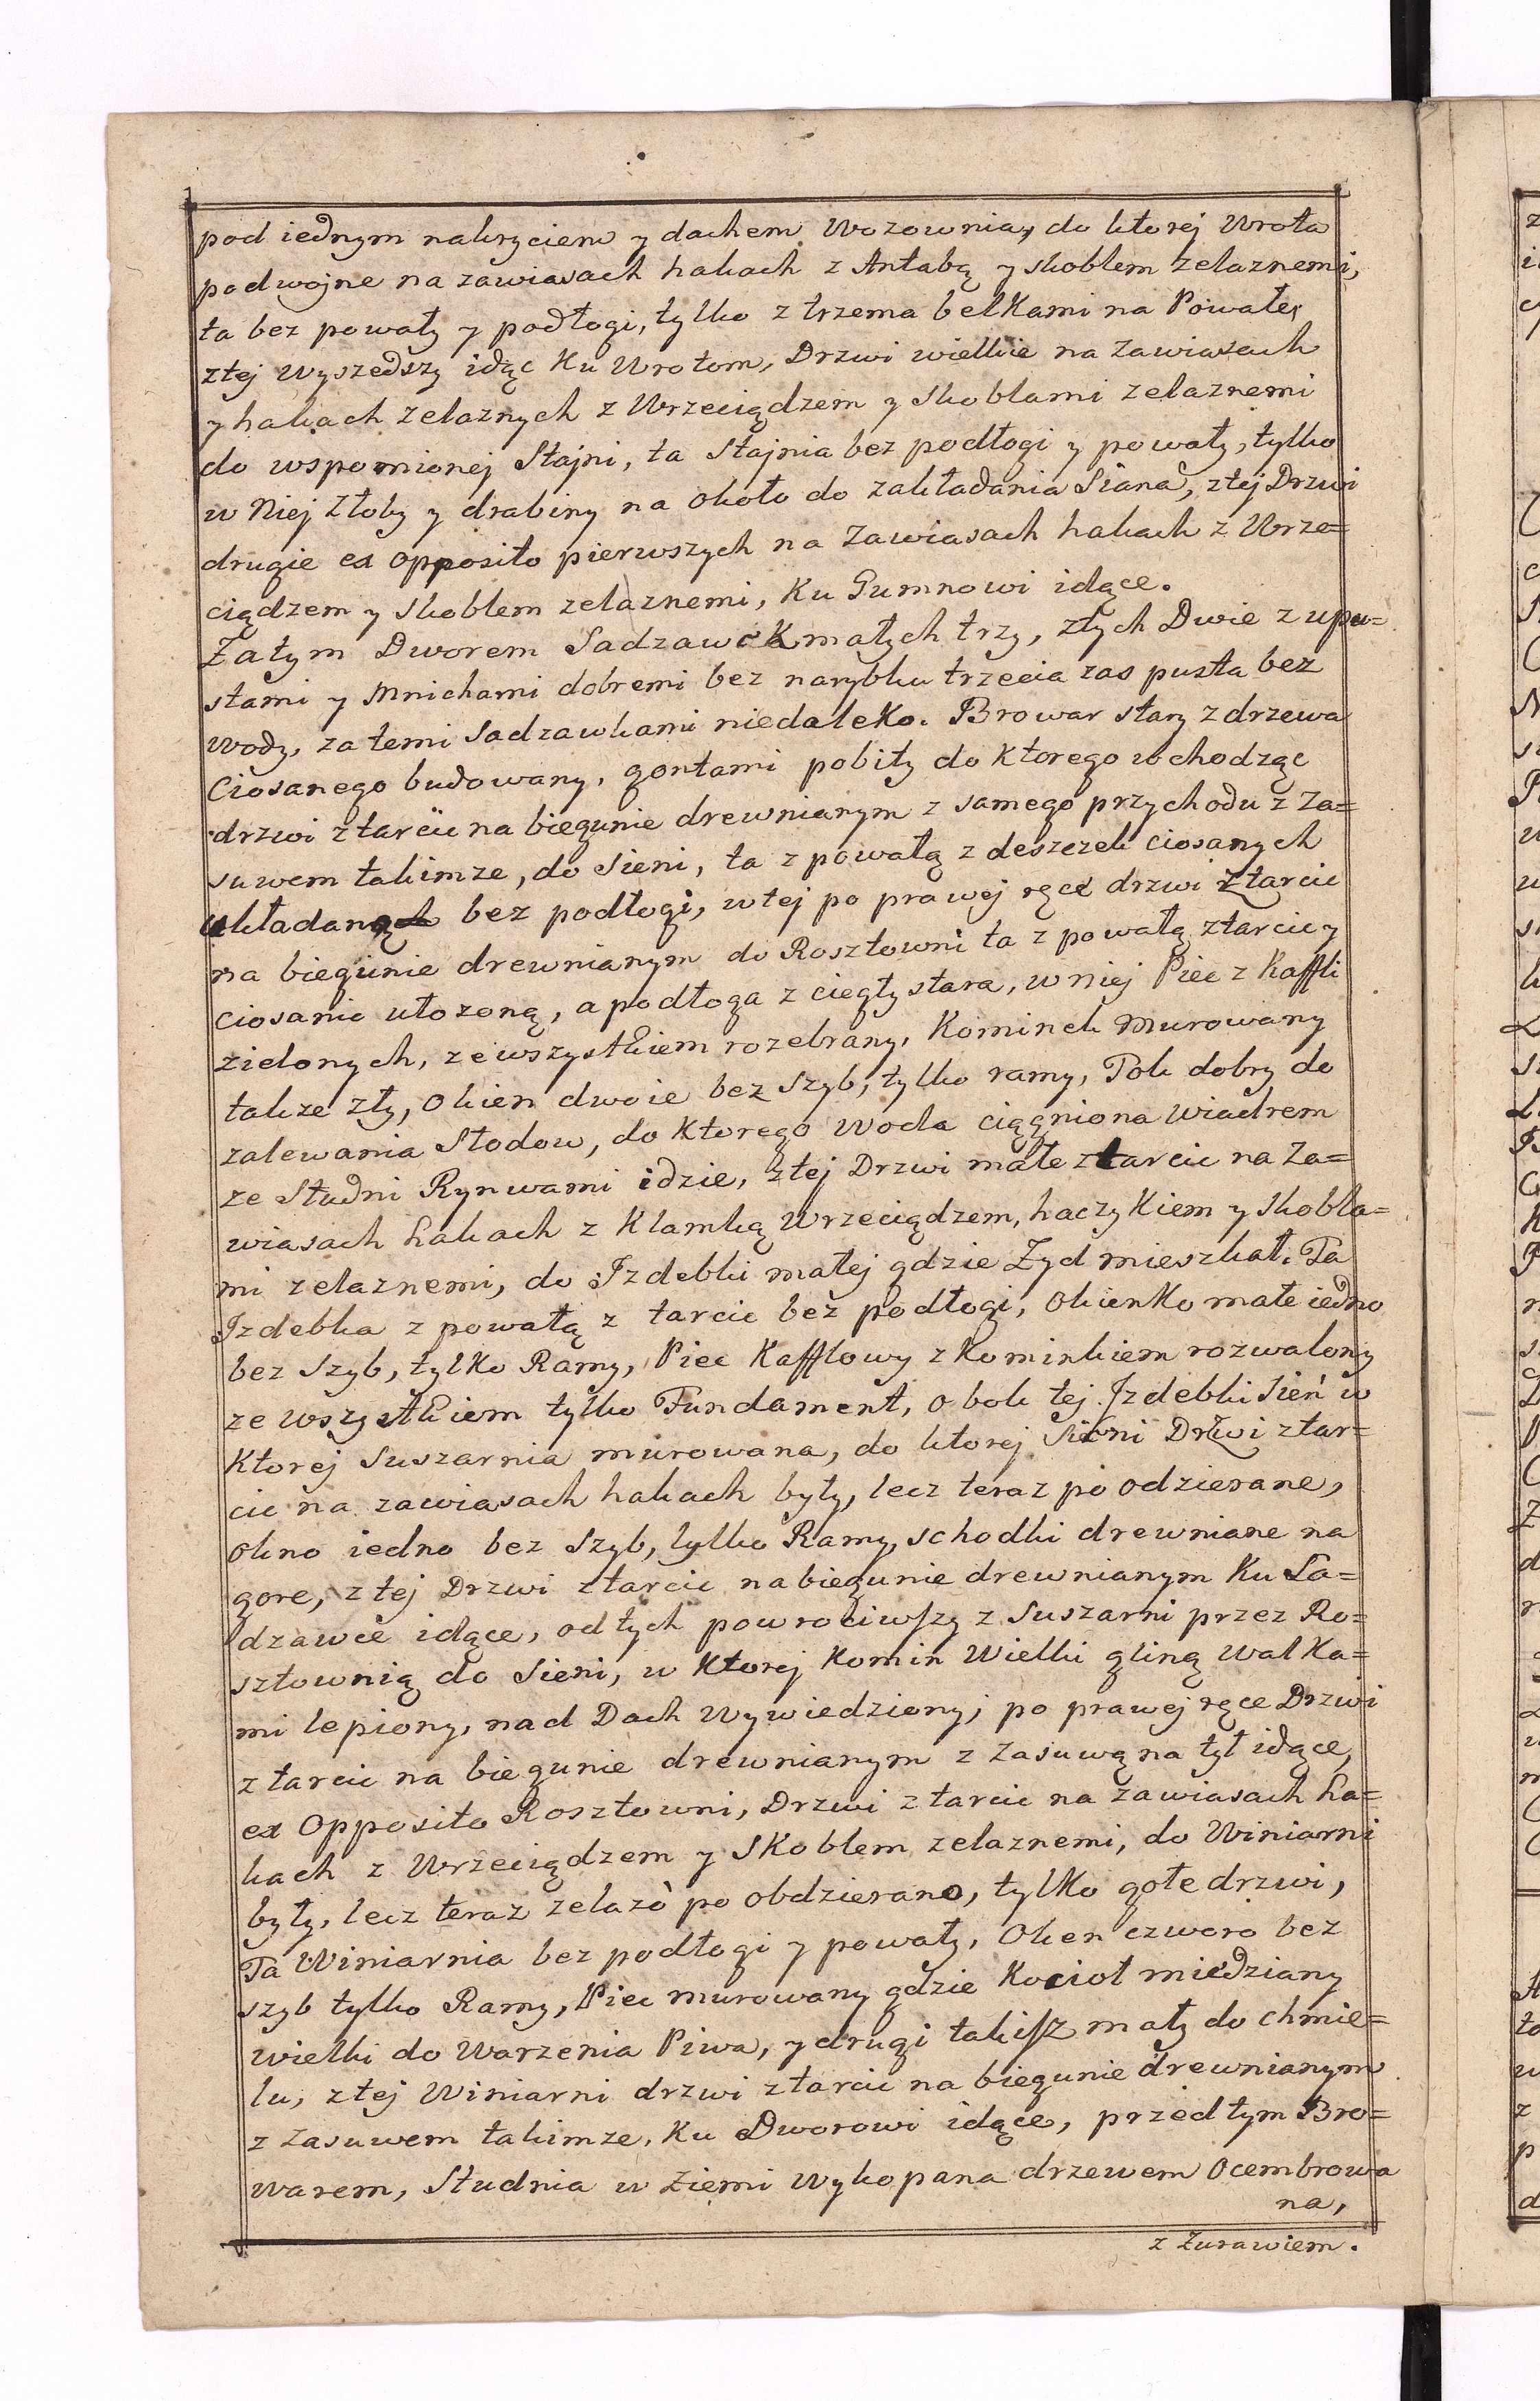 pod iednym nakryciem y dachem Wozownia, do ktorej Wrota
podwojne na zawiasach hakach z Antabą y skoblem zelaznemi,
ta bez powały y podłogi, tylko z trzema belkami na Powałę,
ztej wyszedszy idąc ku Wrotom, Drzwi wielkie na zawiasach
y hakach zelaznych z Wrzeciądzem y skoblami zelaznemi
do wspomionej Stajni, ta Stajnia bez podłogi y powały, tylko
w Niej Złoby y drabiny na około do zakładania Siana, ztej Drzwi
drugie ex opposito pierwszych na Zawiasach hakach z Wrze=
ciądzem y Skoblem zelaznemi, ku Gumnowi idące.
Za tym Dworem Sadzawek małych trzy, ztych Dwie z upu=
stami y Mnichami dobremi bez narybku trzecia zas pusta bez
Wody, za temi Sadzawkami niedaleko. Browar stary z drzewa
Ciosanego budowany, gontami pobity do ktorego wchodząc
drzwi ztarcic na biegunie drewnianym z samego przychodu z Za=
suwem takimze, do Sieni, ta z powałą z deszczek ciosanych
układaną bez podłogi, wtej po prawej ręce drzwi ztarcic
na biegunie drewnianym do Rosztowni ta z powałą ztarcic y
ciosanic ułozoną, a podłoga z cegły stara, w niej Piec z Kaffli
zielonych, ze wszystkiem rozebrany, Kominek Murowany
takze zły, Okien dwoie bez Szyb, tylko ramy, Tok dobry do
zalewania Słodow, do Ktorego Woda ciągniona Wiadrem
ze Studni Rynwami idzie, ztej Drzwi małe ztarcic na Za=
wiasach hakach z Klamką Wrzeciądzem, haczykiem y skobla=
mi zelaznemi, do Izdebki małej gdzie Zyd mieszkał. Ta
Izdebka z powałą z tarcic bez podłogi, Okienko małe iedno
bez Szyb, tylko Ramy, Piec Kafflowy z Kominkiem rozwalony
ze wszystkiem tylko Fundament, obok tej Izdebki Sień w
Ktorej Suszarnia murowana, do ktorej Sieni Drzwi ztar=
cic na zawiasach hakach były, lecz teraz po odzierane,
Okno iedno bez Szyb, tylko Ramy, schodki drewniane na
gore, ztej Drzwi ztarcic na biegunie drewnianym Ku Sa=
dzawce idące, od tych powrociwszy z Suszarni przez Ro=
sztownią do Sieni, w Ktorej Komin Wielki gliną walka=
mi lepiony, nad Dach Wywiedziony; po prawej ręce Drzwi
z tarcic na biegunie drewnianym z Zasuwą na tył idące,
ex Opposito Rosztowni, Drzwi z tarcic na zawiasach ha=
kach z Wrzeciądzem y Skoblem zelaznemi, do Winiarni
były, lecz teraz zelazo po obdzierano, tylko gołe drzwi,
Ta Winiarnia bez podłogi y powały, Okien czworo bez
szyb tylko Ramy, Piec murowany gdzie Kocioł miedziany
wielki do Warzenia Piwa, y drugi takisz mały do chmie=
lu, ztej Winiarni drzwi ztarcic na biegunie drewnianym
z Zasuwem takimze, Ku Dworowi idące, przed tym Bro=
warem, Studnia w Ziemi Wykopana drzewem Ocembrowa
na,
z Zurawiem.